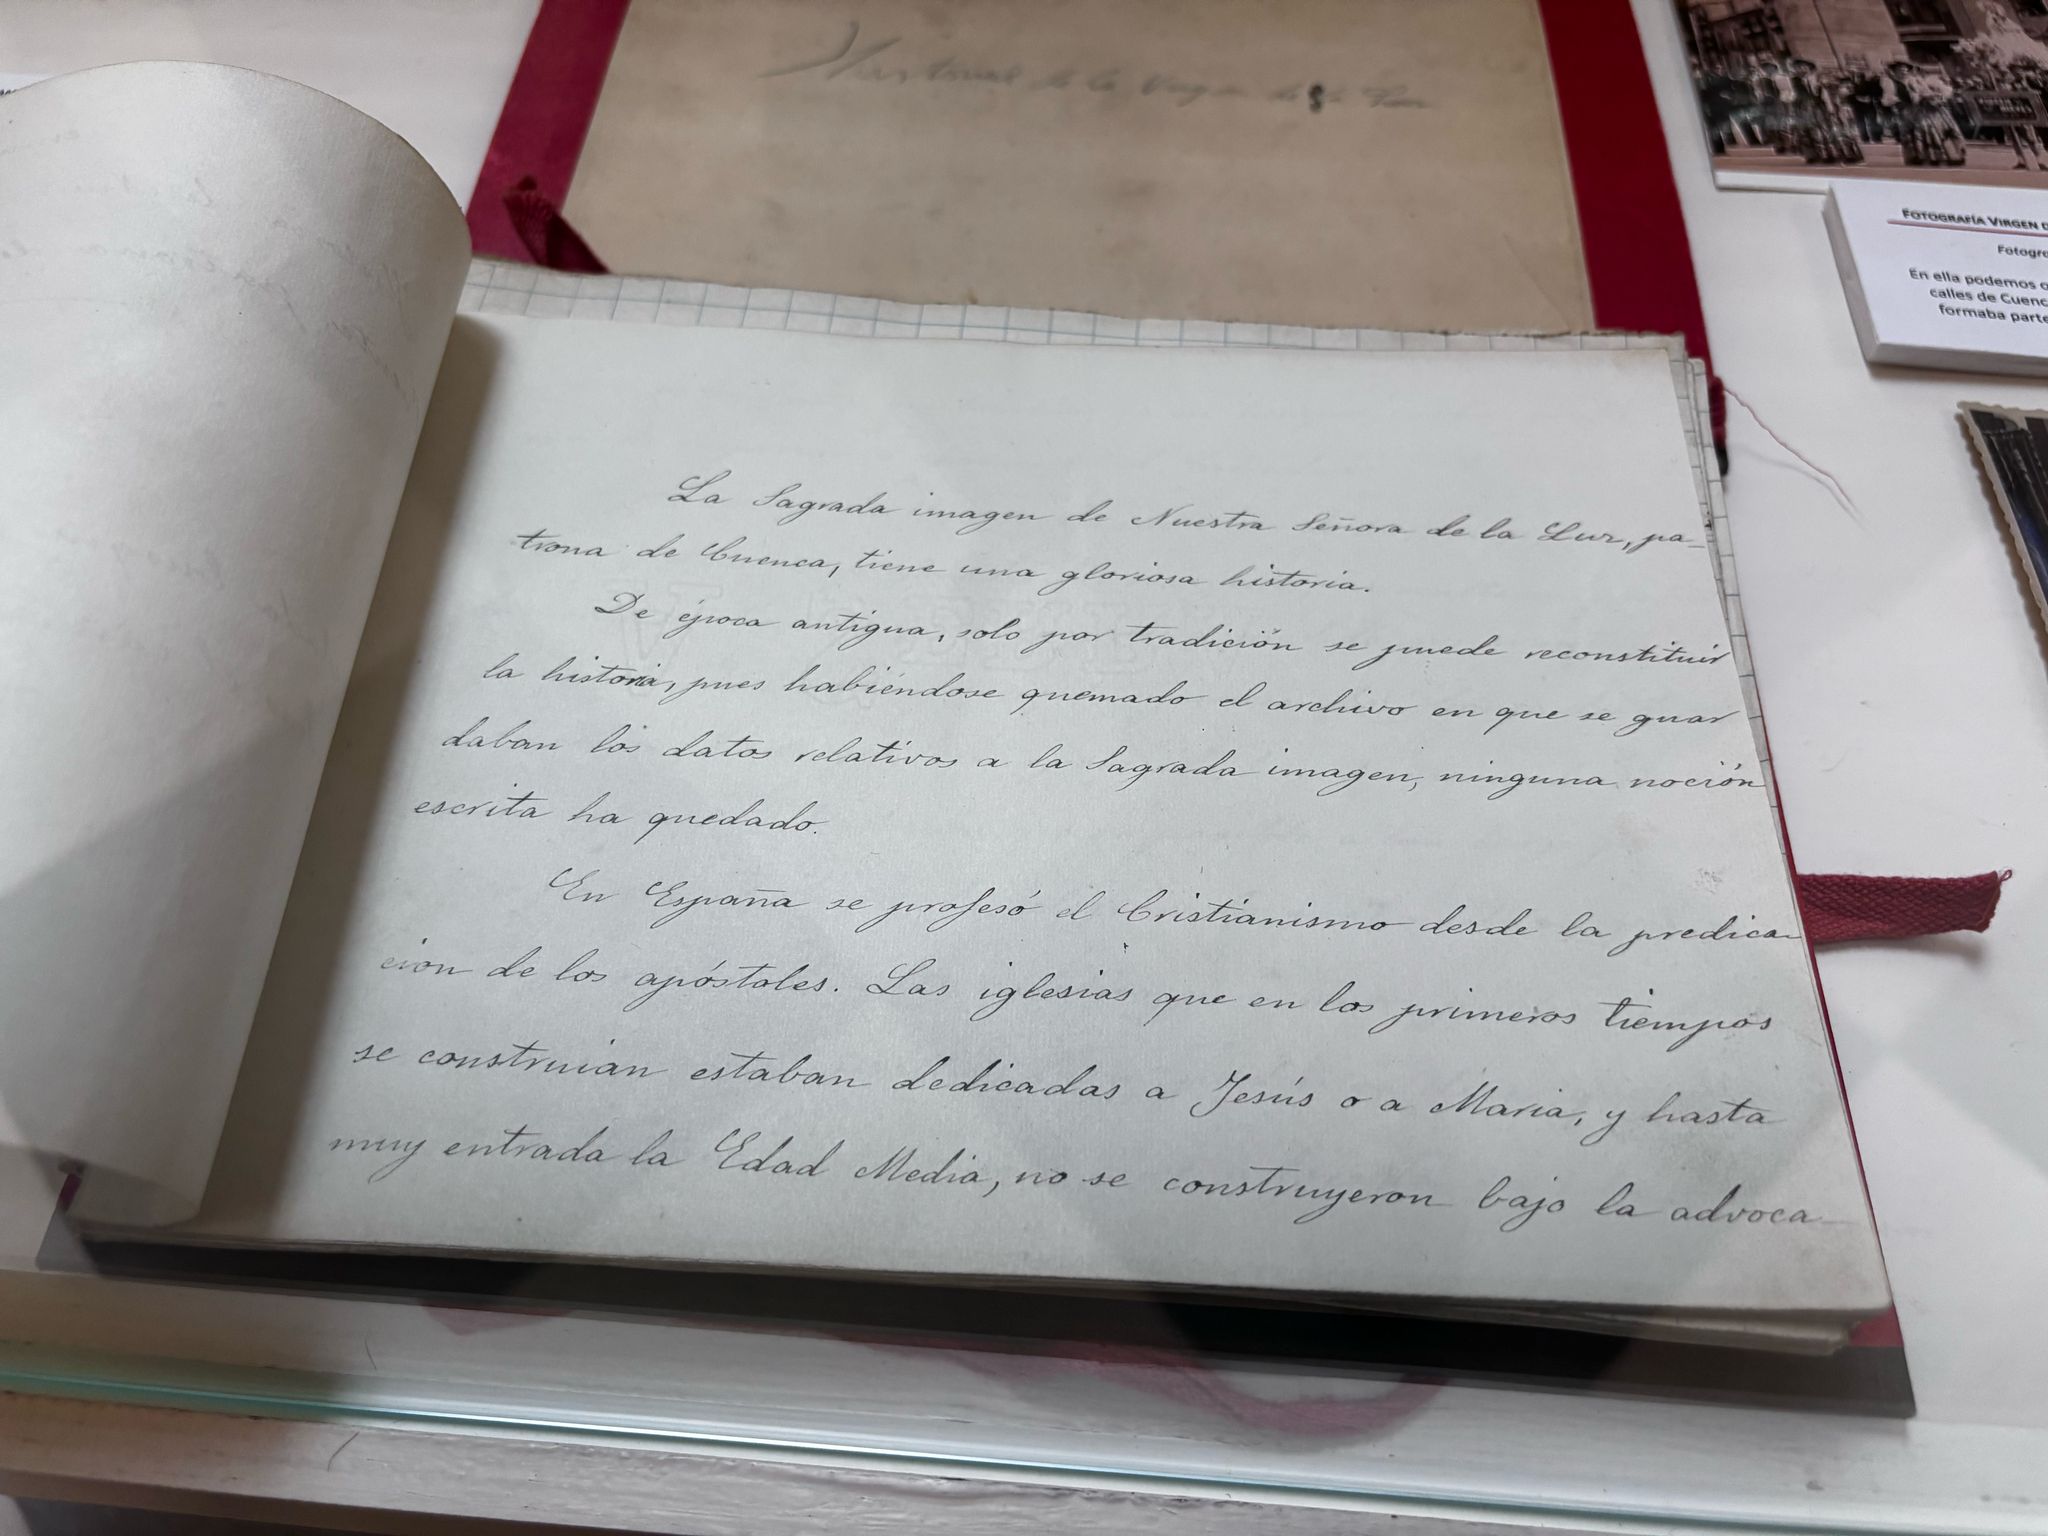 Historial de la Virgen de la Luz
FOTOGRAFÍA VIRGEN D
Fotogra
En ella podemos o
calles de Cuenc
formaba parte
La Sagrada imagen de Nuestra Señora de la Luz, pa-
trona de Cuenca, tiene una gloriosa historia.
De época antigua, solo por tradición se puede reconstituir
la historia, pues habiéndose quemado el archivo en que se guar
daban los datos relativos a la Sagrada imagen, ninguna noción
escrita ha quedado.
En España se profesó el Cristianismo desde la predica-
ción de los apóstoles. Las iglesias que en los primeros tiempos
se construian estaban dedicadas a Jesús o a Maria, y hasta
muy entrada la Edad Media, no se construyeron bajo la advoca-